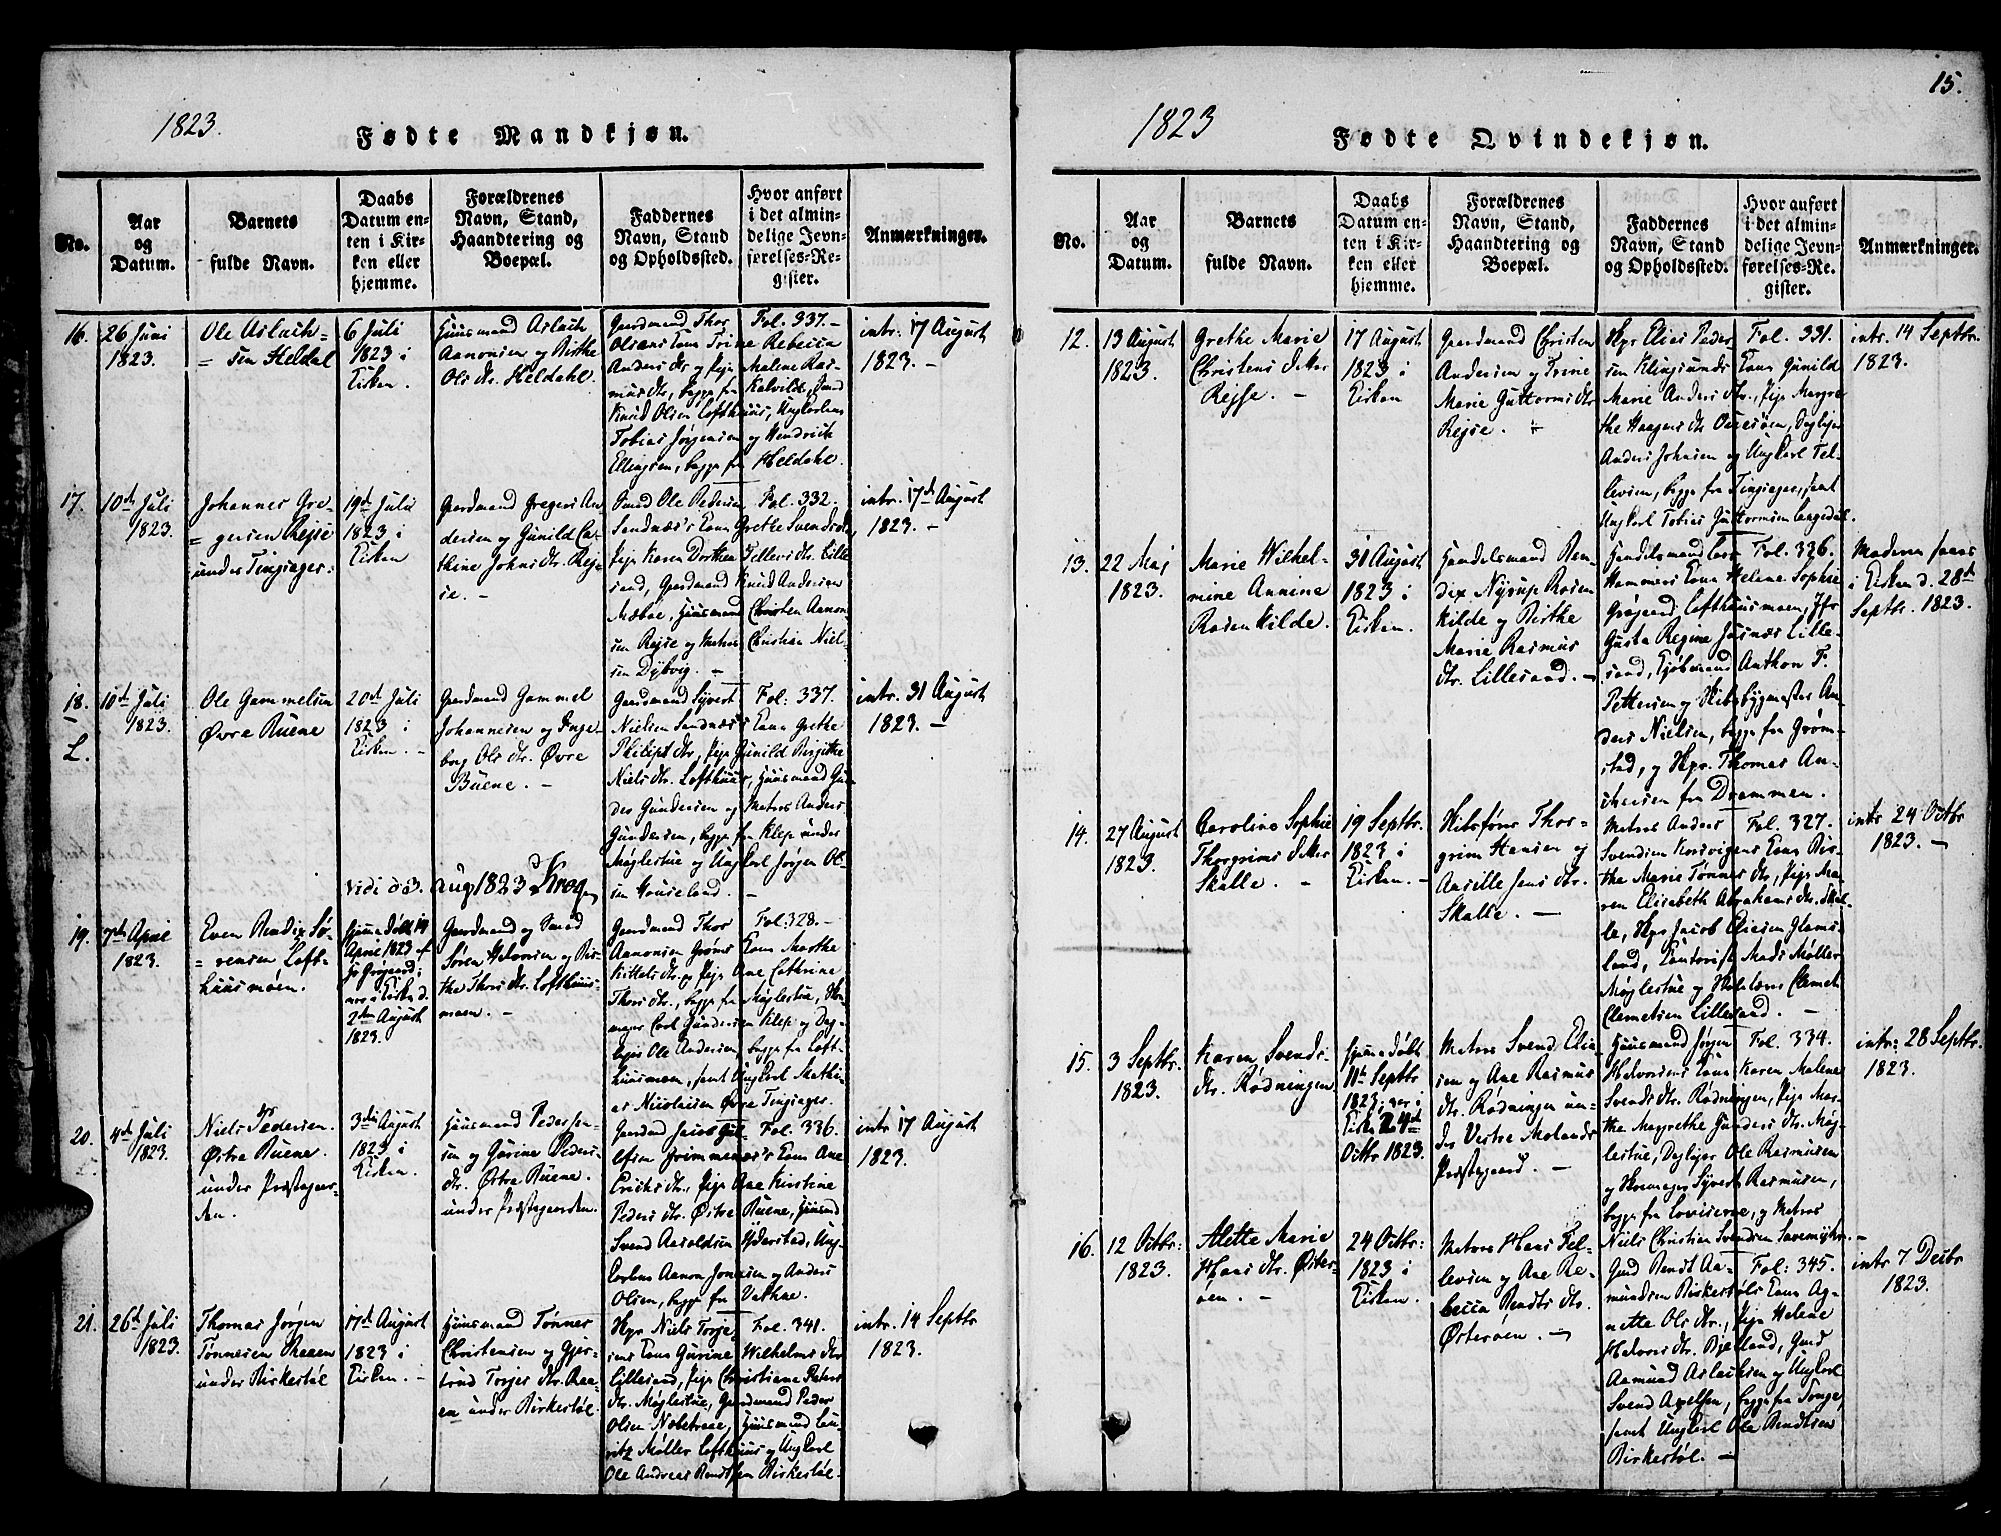 15.
1823.
Fødte Mandkjøn.
No.
Aar
og
Datum.
Barnets
fulde Navn.
Daabs
Datum en-
ten i Kir-
ken eller
hjemme.
Forældrenes
Navn, Stand,
Haandtering og
Boepæl.
Faddernes
Navn, Stand
og Opholdssted.
Hvor anført
i det almin-
delige Jevn-
førelses-Re-
gister.
Anmærkninger.
16.
26 Juni
1823.
Ole Aslach-
= sen Heldal
6 Juli
1823 i
Kirken.
Huusmand Aslach
Aanonsen og Birthe
Ols dtr. Heldahl.
Gaardmand Thor
Olsens Kone Trine Rebecca
Anders dtr og Pige Malene Ras-
mus dtr, begge fra Kalvild, Gmd
Knud Olsen Lofthuus, Ungkarlene
Tobias Jørgensen og Hendrich
Ellingsen, begge fra Heldahl.
Fol. 337.-
intr. 17 August
1823. -
17.
10de Juli
1823.
Johannes Gre-
= gersen Rejse
under Tingsager.
19de Juli
1823 i
Kirken
Gaardmand Gregers An-
dersen og Gunild Ca-
thrine Johns dtr. Rej-
se. -
Gmd Ole Pedersen
Sandnæs's Kone Grethe Svends dtr,
Pige Karen Dorthea Tellevs dtr. Lille-
sand, Gaardmand Knud Andersen
Mæbøe, Huusmand Christen Aanon-
sen Rejse og Matros Christian Niel-
sen Dybvig. -
Fol. 332.
intr. 17de August
1823. -
18.
L.
10de Juli
1823.
Ole Gammelsen
Øvre Buene
20de Juli
1823 i
Kirken. -
Gaardmand Gammel
Johannesen og Inge-
borg Ols dtr. Øvre
Buene. -
Gaardmand Syvert
Nielsen Sandnæs's Kone Grethe
Philips dtr, Pige Gunild Birgithe
Niels dtr. Lofthuus, Huusmand Gun-
der Gundersen og Matros Anders
Gundersen, begge fra Klep under
Møglestue og Ungkarl Jørgen Ol-
sen Houseland. -
Fol: 337.
intr. 31 August
1823. -
Vidi d. 3. Aug 1823 Krog
19.
7de April
1823.
Even Bendix Sø-
= rensen Loft-
huusmoen.
hjemmedøbt 14
April 1823 af
1823.
2den August
Gaardmand og Smed
Søren Halvorsen og Bir-
the Thors dtr. Lofthuus-
moen. -
Gaardmand Thor
Aanonsen Grøms Kone Marthe
Kittels dtr. og Pige Ane Cathrine
Thors dtr., begge fra Møglestue, Sko-
mager Carl Gundersen Klep og Dag-
lejer Ole Andersen, begge fra Loft-
huusmoen, samt Ungkarl Mathi-
as Nicolaisen Øvre Tingsager.
Fol: 328. -
20.
4de Juli
1823.
Niels Pedersen.
Østre Buene.
under Præstegaar-
den.
3die August
1823 i
Kirken.
Huusmand Peder Jen-
sen og Gurine Peders
dtr. Østre Buene.
under Præstegaarden.
Gaardmd Jacob Gul-
lefsen Grimmenæs's Kone Ane
Erichs dtr., Pige Ane Kirstine
Peders dtr. Østre Buene, Huusmd
Svend Aasoldsen Ydderstad, Ung-
karlene Aanon Jonsen og Anders
Olsen, begge fra Vathne.
Fol. 336.
intr. 17 August
1823.
21.
26de Juli
1823.
Thomas Jørgen
Tønnesen Raaen
under Birkestøl
17de August
1823 i
Kirken. -
Huusmand Tønnes
Christensen og Gjer-
trud Torjes dtr. Raa-
en under Birkestøl.
Hrr Niels Torje-
sens Kone Gurine Wilhelms dtr
Lillesand, Pige Christiane Peters
dtr. Møglestue, Gaardmand Peder
Olsen Nøbetraae, Huusmand Lau-
ritz Møller Lofthuus og Ungkarl
Ole Andreas Bendtsen Birkestøl.
Fol. 341.
intr. 14 Septbr
1823.
1823
Fødte Qvindekjøn.
No.
Aar
og
Datum.
Barnets
fulde Navn.
Daabs
Datum en-
ten i Kir-
ken eller
hjemme.
Forældrenes
Navn, Stand,
Haandtering og
Boepæl.
Faddernes
Navn, Stand
og Opholdssted.
Hvor anført
i det almin-
delige Jevn-
førelses-Re-
gister.
Anmærkninger.
12.
13 August
1823.
Grethe Marie
Christens datter
Rejse. -
17 August
1823 i
Kirken
Gaardmand Christen
Andersen og Trine
Marie Guttorms dtr
Rejse. -
Hrr Elias Peder-
sen Klingsunds Kone Gunild
Marie Anders dtr., Pige Margre-
the Haagens dtr Ouesøen, Daglejer
Anders Johnsen og Ungkarl Tel-
levsen, begge fra Tingsager, samt
Ungkarl Tobias Guttormsen Langedal.
Fol. 331.
intr. 14 Septbr.
1823.
13.
22 Maj
1823.
Marie Wilhel-
mine Annine
Rosenkilde.
31 August
1823 i
Kirken.
Handelsmand Ben-
dix Nyrup Rosen
kilde og Birthe
Marie Rasmus
dtr. Lillesand. -
Handelsmand Lars
Hammers Kone Helene Sophie
Grøgaard, Lofthuusmoen, Jfr
Gusta Regine Jusnæs Lille-
sand, Kjøbmand Anthon F.
Pettersen og Skibsbygmester An-
ders Nielsen, begge fra Grøm-
stad, og Hrr. Thomas An-
thersen fra Drammen.
Fol. 326.
Moderen
i Kirken d. 28de
Septbr. 1823.
14.
27 August
1823.
Caroline Sophie
Thorgrims datter
Skalle. -
19 Septbr.
1823 i
Kirken. -
Thor-
grim Hansen og
Aaselle Jens dtr.
Skalle. -
Matros Anders
Svendsen Korsvigens Kone Bir-
the Marie Tønnes dtr, Pige Ma-
ren Elisabeth Abrahams dtr. Skal-
le, Hrr Jacob Eliesen Glams-
land, Contorist Mads Møller
Møglestue og Clemet
Clemetsen Lillesand. -
Fol. 327.
intr 24 Octbr
1823. -
15.
3 Septbr.
1823.
Karen Svends
dtr. Rødningen
hjemmedøbt
11te Septbr
1823, i
Kirken 24de
Octbr 1823.
Matros Svend Elia-
sen og Ane Rasmus
dtr. Rødningen un-
der Vestre Molands
Præstegaard. -
Huusmand Jørgen
Halvorsens Kone Karen Malene
Svends dtr. Rødningen, Pige Mar-
the Margrethe Gunders dtr. Møg-
lestue, Daglejer Ole Rasmusen
og Skomager Syvert Rasmusen,
begge fra Lovisenne, og Matros
Niels Christian Svendsen Savemyhr. -
Fol. 334.
intr: 28 Septbr.
1823.
16.
12 Octbr:
1823.
Alette Marie
Hans dtr. Øster-
øen. -
24 Octbr:
1823 i
Kirken.
Matros Hans Tel-
levsen og Ane Re-
becca Bendts dtr.
Østerøen. -
Gmd Bendt Aa-
mundsen Birkestøls Kone Ag-
nette Ols dtr., Pige Helene
Halvors dtr. Bjelland, Gmd
Aamund Aslachsen og Ungkarl
Svend Axelsen, begge fra Tonge,
samt Ungkarl Ole Bendtsen
Birkestøl. -
Fol: 345.
intr 7 Decbr
1823.